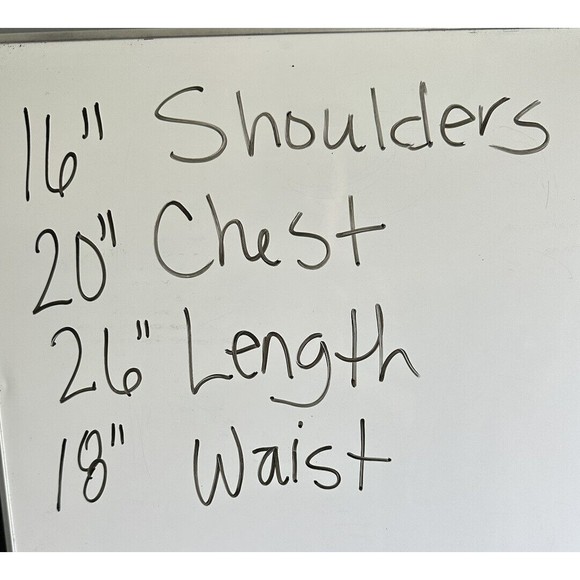 16" Shoulders
20" Chest
26" Length
18" Waist